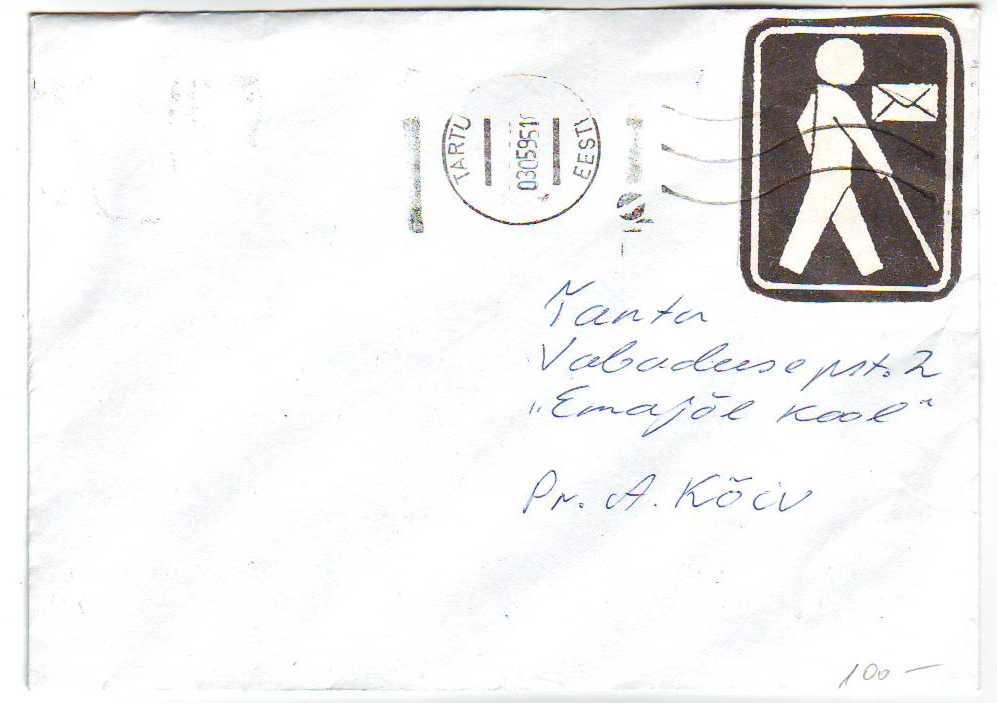 TARTU
03059516
EESTI
Tartu
Vabaduse pst. 2
„Emajõe kool“
Pr. A. Kõiv
100 –